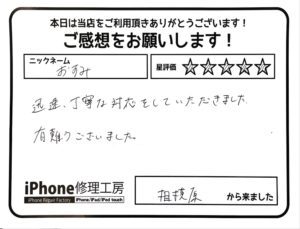 本日は当店をご利用頂きありがとうございます！
ご感想をお願いします！
ニックネーム
おすみ
星評価 ☆☆☆☆☆
迅速、丁寧な対応をしていただきました
有難うございました。
iPhone修理工房
iPhone Repair Factory iPhone/iPad/iPod touch
相模原 から来ました